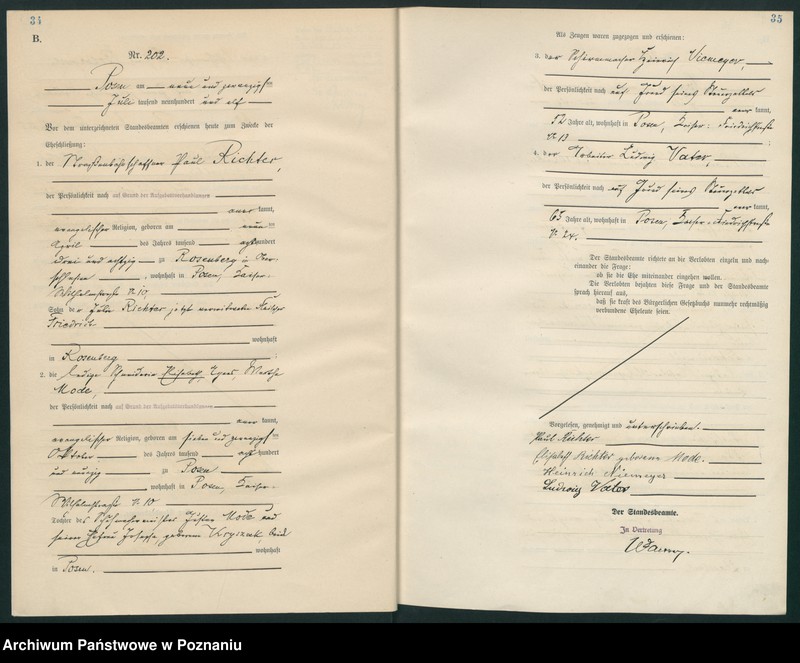 34
B.
Nr. 202.
Posen am neun und zwanzigsten
Juli tausend neunhundert und elf
Vor dem unterzeichneten Standesbeamten erschienen heute zum Zwecke der
Eheschließung:
1. der Straßenbahnschaffner Paul Richter,
der Persönlichkeit nach auf Grund der Aufgebotsverhandlungen
anerkannt,
evangelischer Religion, geboren am neunten
April des Jahres tausend achthundert
drei und achtzig zu Rosenberg in Ober-
schlesien, wohnhaft in Posen, Kaiser-
Wilhelmstraße N. 10,
Sohn der Julie Richter, jetzt verwitwete
Friedrich
wohnhaft
in Rosenberg;
2. die ledige Schneiderin Elisabeth, Agnes, Martha
Mode,
der Persönlichkeit nach auf Grund der Aufgebotsverhandlungen
anerkannt,
evangelischer Religion, geboren am sieben und zwanzigsten
Oktober des Jahres tausend achthundert
und neunzig zu Posen
wohnhaft in Posen, Kaiser-
Wilhelmstraße N. 10
Tochter des Schuhmachermeisters Gustav Mode und
seiner Ehefrau geborenen beide
wohnhaft
in Posen.
35
Als Zeugen waren zugezogen und erschienen:
3. der Schirmmacher Heinrich Niemeyer,
der Persönlichkeit nach auf Grund seines Steuerzettels
anerkannt,
52 Jahre alt, wohnhaft in Posen, Kaiser-Friedrichstraße
N. 13;
4. der Arbeiter Ludwig Vater,
der Persönlichkeit nach auf Grund seines Steuerzettels
anerkannt,
63 Jahre alt, wohnhaft in Posen, Kaiser-Friedrichstraße
N. 24.
Der Standesbeamte richtete an die Verlobten einzeln und nach-
einander die Frage:
ob sie die Ehe miteinander eingehen wollen.
Die Verlobten bejahten diese Frage und der Standesbeamte
sprach hierauf aus,
daß sie kraft des Bürgerlichen Gesetzbuchs nunmehr rechtmäßig
verbundene Eheleute seien.
Vorgelesen, genehmigt und unterschrieben.
Paul Richter
Elisabeth Richter geborene Mode.
Heinrich Niemeyer
Ludwig Vater
Der Standesbeamte.
In Vertretung
Archiwum Państwowe w Poznaniu